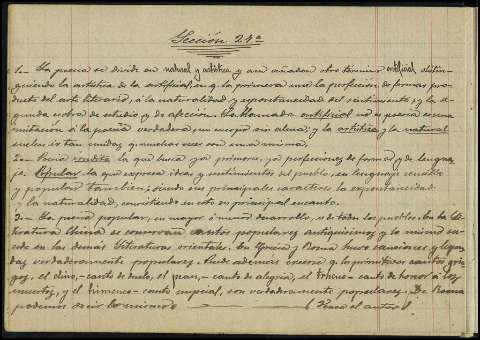 Sección 24ª
1.- La poesía se divide en natural y artística y aun añaden otro término artificial distin-
guiendo la artística de la artificial, en q. la primera une la perfección de formas pro-
ducto del arte literario, á la naturalidad y espontaneidad del sentimiento, y la se-
gunda es obra de estudio y de afección. La llamada artificial no es poesía es una
imitación á la poesía verdadera, un cuerpo sin alma; y la artística y la natural
suelen ir tan unidas q. muchas veces son una misma.
2.- Poesía erudita la que busca ya primores, ya perfecciones de forma y de lengua-
je. Popular la que expresa ideas y sentimientos del pueblo, en lenguaje sencillo
y popular también; siendo sus principales caracteres la espontaneidad
y la naturalidad, consistiendo en esto su principal encanto.
3.- La poesía popular, en mayor ó menor desarrollo, es de todos los pueblos. En la Li-
teratura China se conservan cantos populares antiquísimos y lo mismo su-
cede en las demás literaturas orientales. En Grecia y Roma hubo canciones y leyen-
das verdaderamente populares. Pude además creerse q. los primitivos cantos grie-
gos, el lino,- canto de duelo, el pean,- canto de alegría, el threno - canto de honor a los
muertos, y el himeneo - canto nupcial, son verdaderamente populares. De Roma
podemos decir lo mismo. (Hace el autor)